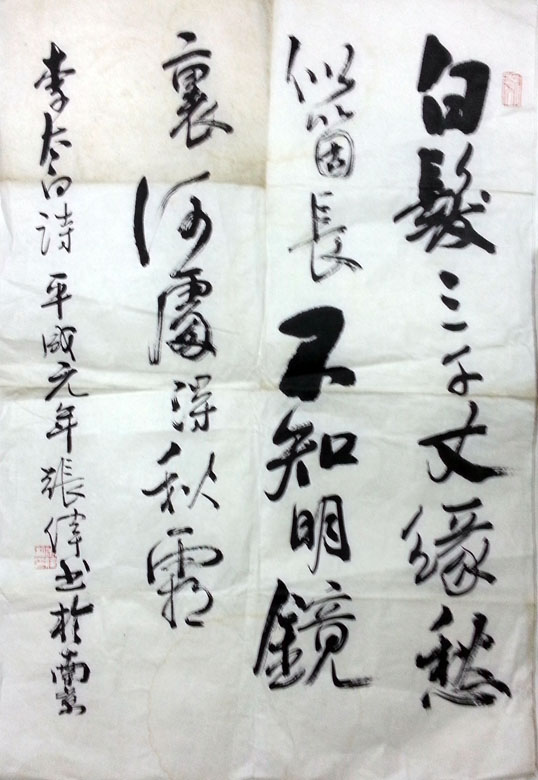 白髮三千丈緣愁
似箇長不知明鏡
裏何處得秋霜
李太白詩 平成元年 張偉书於南京